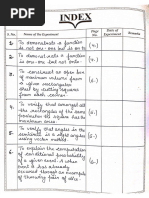 INDEX
S. No.
Name of the Experiment
Page No.
Date of Experiment
Remarks
1.
To demonstrate a function
is not one-one but is on to
(1.)
2.
To demonstrate a function
is one-one but not onto.
(2.)
3.
To construct an open box
of maximum volume
from a given rectangular
sheet by cutting
squares from each
corner.
(3.)
4.
To verify that amongst all
the rectangles of the same
perimeter the square has
maximum
(4.)
5.
To verify that angle in the
semicircle is a
right angle
vector method.
(5.)
6.
To explain the computation
of conditional probability
of a given event A, when
event B has already
occurred through an example
of throwing pair of dice.
(6.)